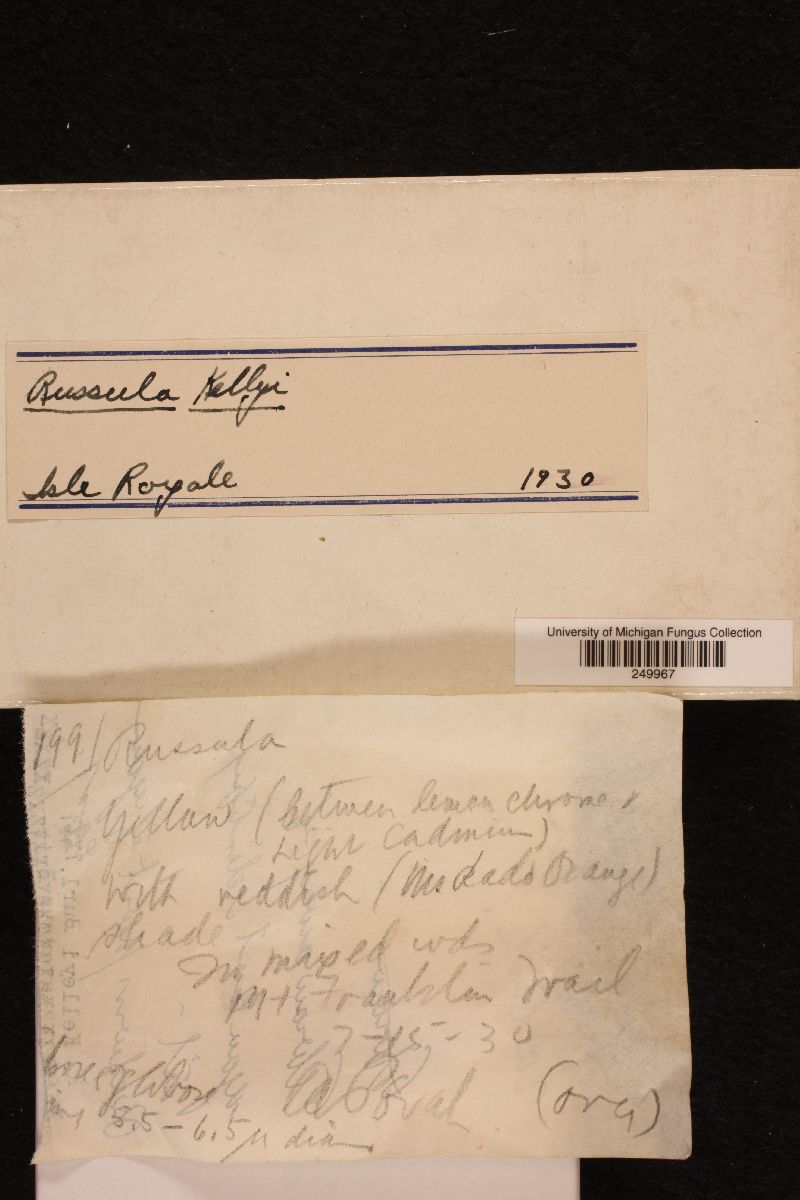 Russula Kellyi
Isle Royale 1930
University of Michigan Fungus Collection
249967
199/ Russula
Yellow (between lemon chrome &
Light Cadmium)
With reddish (Mikado Orange)
shade
In mixed wds
Mt Franklin Trail
7-15-30
Oval (orig)
5.5-6.5 µ dia.